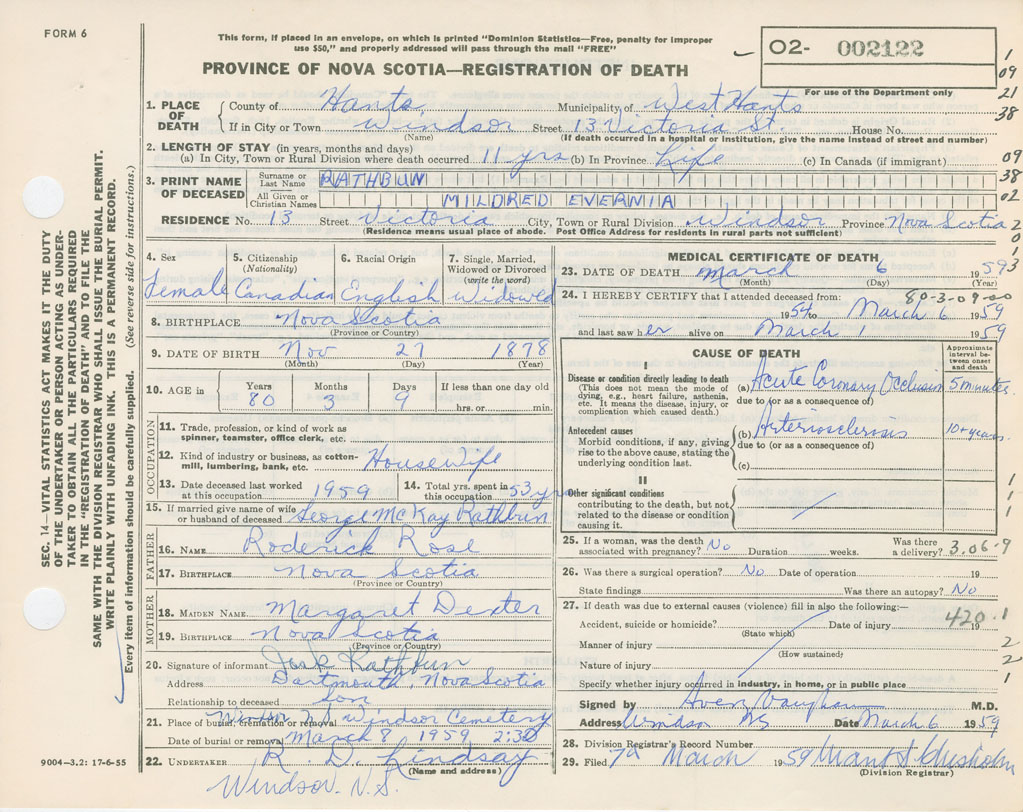 FORM 6
This form, if placed in an envelope, on which is printed "Dominion Statistics—Free, penalty for improper
use $50," and properly addressed will pass through the mail "FREE"
PROVINCE OF NOVA SCOTIA—REGISTRATION OF DEATH
O2- 002122
For use of the Department only
1
09
21
38
09
38
02
2
0
1
3
1. PLACE OF DEATH { County of Hants Municipality of West Hants
If in City or Town Windsor Street 13 Victoria St. House No.
(Name) (If death occurred in a hospital or institution, give the name instead of street and number)
2. LENGTH OF STAY (in years, months and days)
(a) In City, Town or Rural Division where death occurred 11 yrs (b) In Province Life (c) In Canada (if immigrant)
3. PRINT NAME OF DECEASED
Surname or Last Name RATHBUN
All Given or Christian Names MILDRED EVERNIA
RESIDENCE No. 13 Street Victoria City, Town or Rural Division Windsor Province Nova Scotia
(Residence means usual place of abode. Post Office Address for residents in rural parts not sufficient)
4. Sex Female
5. Citizenship (Nationality) Canadian
6. Racial Origin English
7. Single, Married, Widowed or Divorced (write the word) Widowed
8. BIRTHPLACE Nova Scotia
(Province or Country)
9. DATE OF BIRTH Nov 27 1878
(Month) (Day) (Year)
10. AGE in Years 80 Months 3 Days 9 If less than one day old
hrs. or min.
OCCUPATION
11. Trade, profession, or kind of work as
spinner, teamster, office clerk, etc.
12. Kind of industry or business, as cotton-
mill, lumbering, bank, etc. Housewife
13. Date deceased last worked
at this occupation 1959
14. Total yrs. spent in
this occupation 53 yrs
15. If married give name of wife
or husband of deceased George McKay Rathbun
FATHER
16. NAME Roderick Rose
17. BIRTHPLACE Nova Scotia
(Province or Country)
MOTHER
18. MAIDEN NAME Margaret Dexter
19. BIRTHPLACE Nova Scotia
(Province or Country)
20. Signature of informant Rathbun
Address Dartmouth, Nova Scotia
Relationship to deceased Son
21. Place of burial, cremation or removal Windsor Cemetery
Date of burial or removal March 8 1959 2:30
22. UNDERTAKER R. D. Lindsay
(Name and address)
Windsor. N.S.
MEDICAL CERTIFICATE OF DEATH
23. DATE OF DEATH March 6 1959
(Month) (Day) (Year)
24. I HEREBY CERTIFY that I attended deceased from: 80-3-09-00
1954 to March 6 1959
and last saw her alive on March 1 1959
CAUSE OF DEATH
Approximate interval between onset and death
I
Disease or condition directly leading to death
(This does not mean the mode of
dying, e.g., heart failure, asthenia,
etc. It means the disease, injury, or
complication which caused death.)
(a) Acute Coronary Occlusion 5 minutes
due to (or as a consequence of)
Antecedent causes
Morbid conditions, if any, giving
rise to the above cause, stating the
underlying condition last.
(b) Arteriosclerosis 10+ years
due to (or as a consequence of)
(c)
II
Other significant conditions
contributing to the death, but not
related to the disease or condition
causing it.
1
1
1
25. If a woman, was the death
associated with pregnancy? No Duration weeks. Was there
a delivery? 3.06.9
26. Was there a surgical operation? No Date of operation 19
State findings Was there an autopsy? No
27. If death was due to external causes (violence) fill in also the following:—
420.1
Accident, suicide or homicide? Date of injury 19
(State which)
Manner of injury 2
(How sustained)
Nature of injury 2
Specify whether injury occurred in industry, in home, or in public place 1
Signed by Avery Vaughan M.D.
Address Windsor NS Date March 6 1959
28. Division Registrar's Record Number
29. Filed 7th March 1959
(Division Registrar)
SEC. 14—VITAL STATISTICS ACT MAKES IT THE DUTY
OF THE UNDERTAKER OR PERSON ACTING AS UNDER-
TAKER TO OBTAIN ALL THE PARTICULARS REQUIRED
IN THE "REGISTRATION OF DEATH" AND TO FILE THE
SAME WITH THE DIVISION REGISTRAR WHO SHALL ISSUE THE BURIAL PERMIT.
WRITE PLAINLY WITH UNFADING INK. THIS IS A PERMANENT RECORD.
Every item of information should be carefully supplied. (See reverse side for instructions.)
9004—3.2: 17-6-55